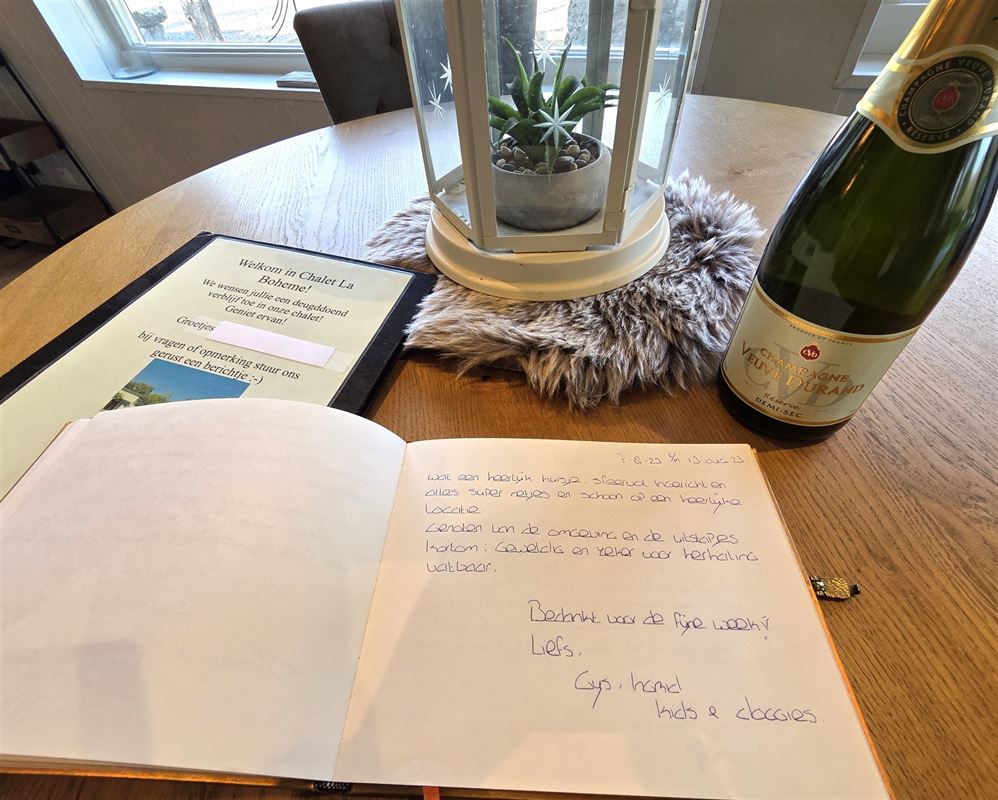 Welkom in Chalet La
Boheme!
We wensen jullie een deugddoend
verblijf toe in onze chalet!
Geniet ervan!
Groetjes
bij vragen of opmerking stuur ons
gerust een berichtje :-)
CHAMPAGNE VEUVE
RESERVE
PRODUCE OF FRANCE
CVD
CHAMPAGNE
VEUVE DURAND
Réserve
DEMI-SEC
7-8-23 t/m 13 aug 23
wat een heerlijk huisje, sfeervol ingericht en
alles super netjes en schoon op een heerlijke
locatie.
Genoten van de omgeving en de uitstapjes
kortom: Geweldig en zeker voor herhaling
vatbaar.
Bedankt voor de fijne week!
Liefs,
Gys, Ingrid
kids & doggies.